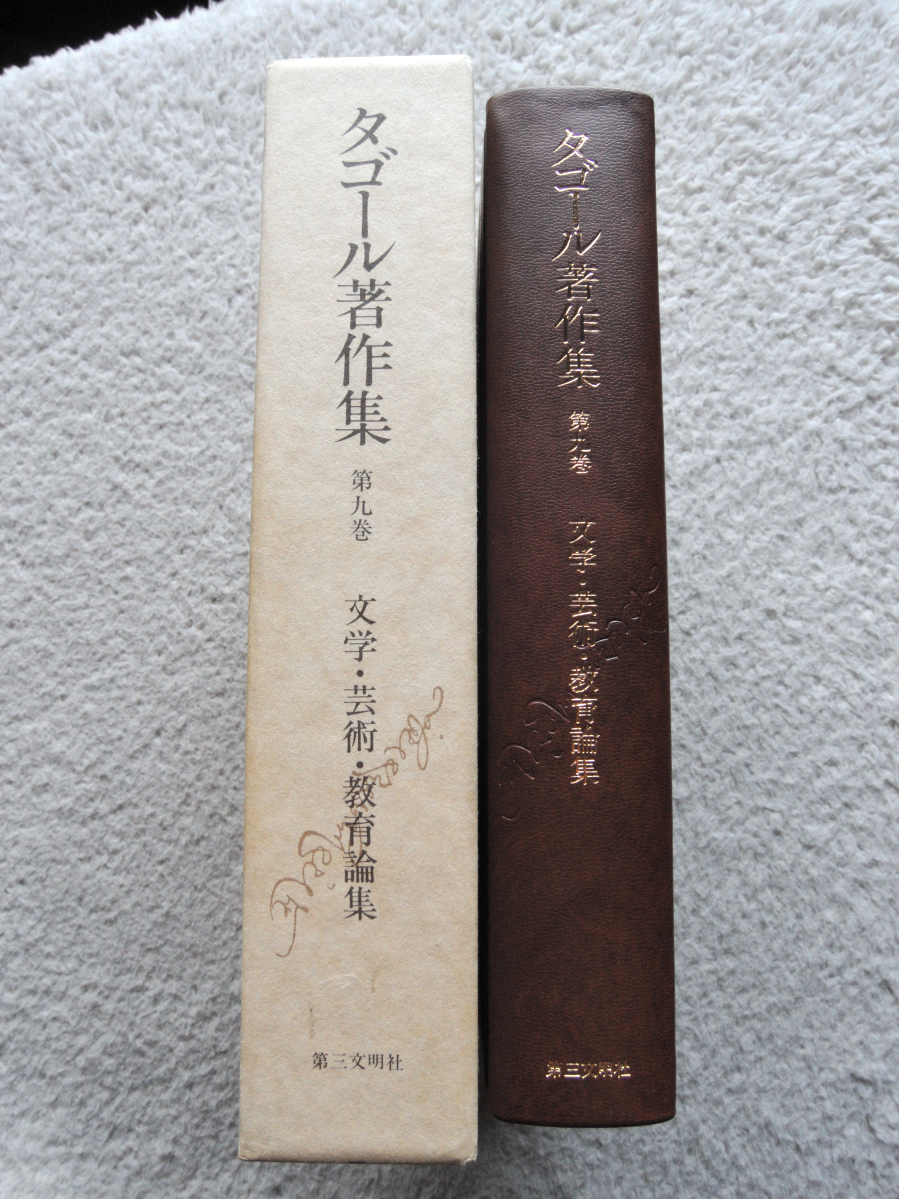 タゴール著作集
第九巻
文学・芸術・教育論集
第三文明社
タゴール著作集
第九巻
文学・芸術・教育論集
第三文明社